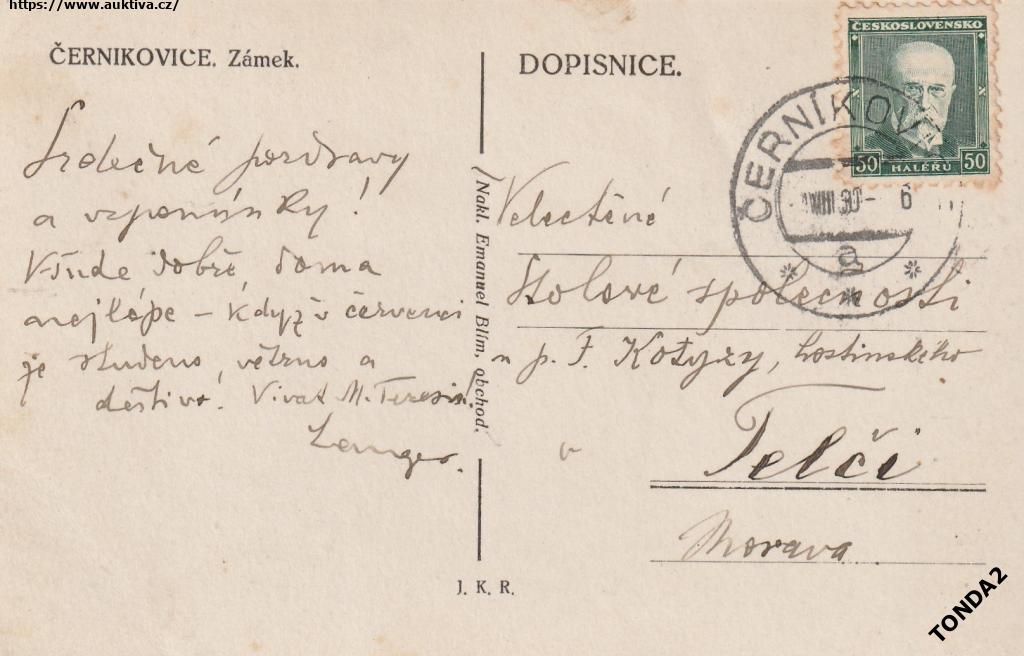 https://www.auktiva.cz/
ČERNIKOVICE. Zámek.
Srdečné pozdravy
a vzpomínky!
Všude dobře, doma
nejlépe – když v červenci
je studeno, větrno a
deštivo! Vivat M.
Langer.
Nakl. Emanuel Blím, obchod.
J. K. R.
DOPISNICE.
ČESKOSLOVENSKO
50 HALÉŘŮ 50
ČERNÍKOV
VIII 30 - 6
a
Velectěné
Stolové společnosti
u p. F. Kotyzy, hostinského
v Telči
Morava
TONDA2